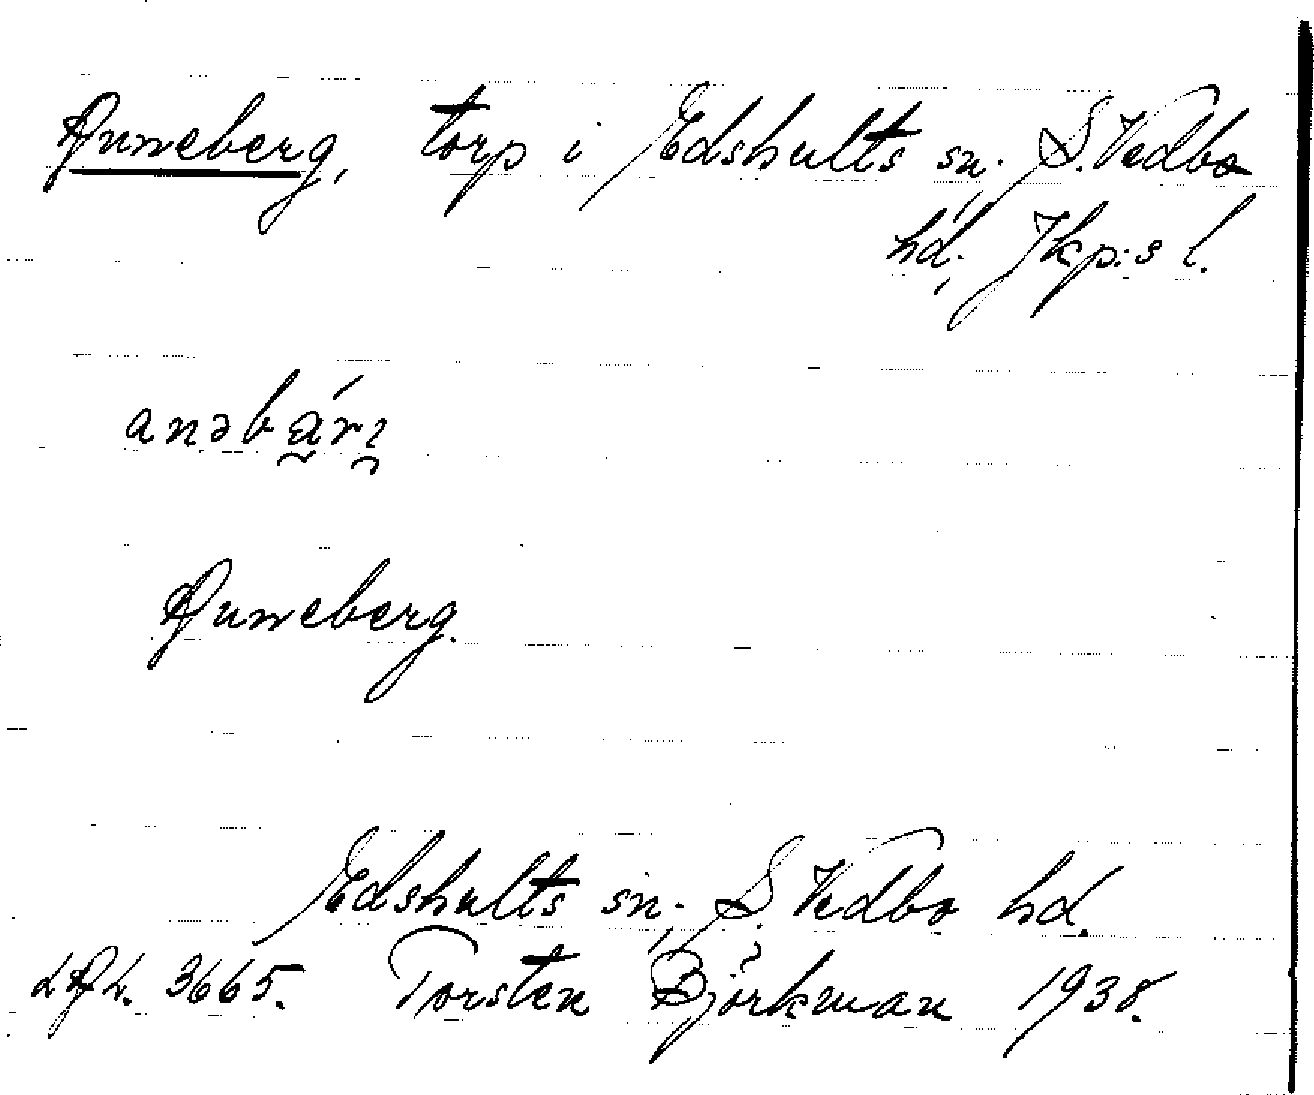 Anneberg, torp i Edshults sn. S. Vedbo
hd. Jkp:s l.
anəbári̯
Anneberg.
Edshults sn. S. Vedbo hd.
LAL. 3665. Torsten Björkman 1938.